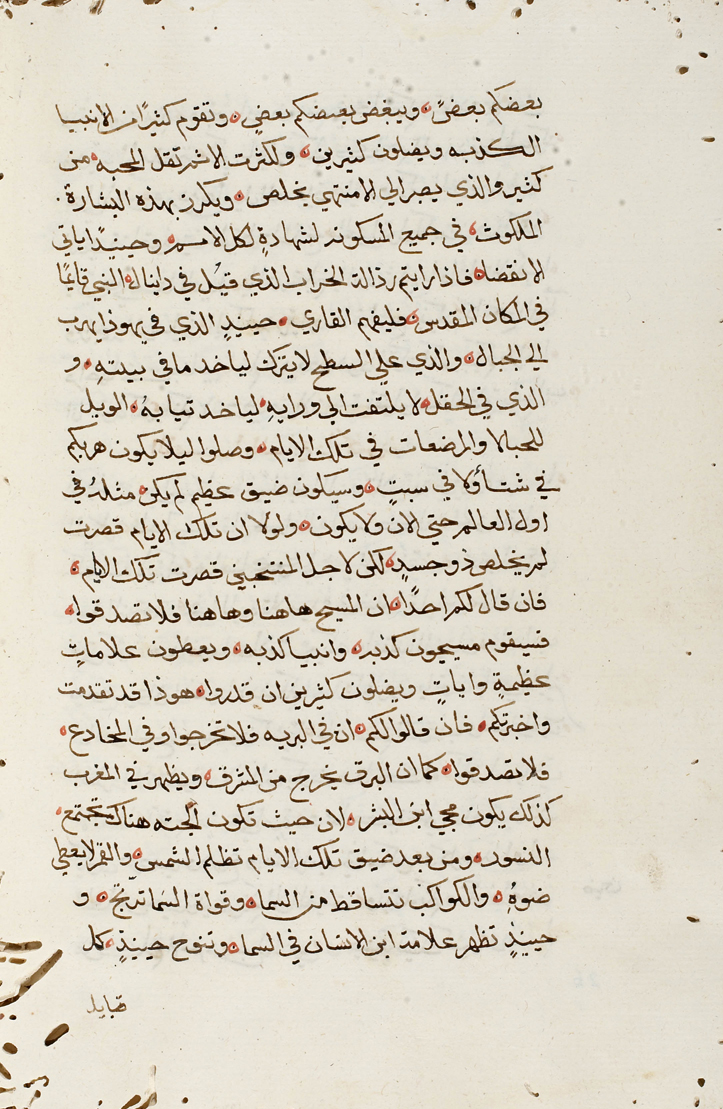 بعضكم بعضً ۰ ويبغض بعضكم بعضٍ ۰ وتقوم كثيرًا من الانبيا
الكذبه ويضلون كثيرين ۰ ولكثرت الاثم تقل المحبه ۰ من
كثير والذي يصبر الي المنتهي يخلص ۰ ويكرز بهذه البشارة ۰
الملكوث ۰ في جميع المسكونه لشهادةٍ لكل الامم ۰ وحينيدًا ياتي
الانقضا ۰ فاذا رايتم رذالة الخراب الذي قيُل في دانيال النبي قايمًا
في المكان المقدس ۰ فليفهم القاري ۰ حينيدٍ الذي في يهوذا يهرب
الي الجبال ۰ والذي علي السطح لا يترك لياخد ما في بيتهِ ۰ و
الذي في الحقل ۰ لا يلتفت الي ورايهِ ۰ لياخد تيابهُ ۰ الويل
للحبالا والمرضعات في تلك الايام ۰ وصلوا ليلا يكون هربكم
في شتاٍ ولا في سبتٍ ۰ وسيكون ضيق عظيم لم يكن ۰ مثلهُ في
اول العالم حتي الان ولا يكون ۰ ولولا ان تلك الايام قصرت
لم يخلص ذو جسدٍ ۰ لكن لاجل المنتخبين قصرت تلك الايام ۰
فان قال لكم احدًا ۰ ان المسيح هاهنا وهاهنا فلا تصدقوا ۰
فسيقوم مسيحيون كذبه ۰ وانبيا كذبه ۰ ويعطون علاماتٍ
عظيمةٍ واياتٍ ويضلون كثيرين ان قدروا ۰ هوذا قد تقدمت
واخبرتكم ۰ فان قالوا لكم ۰ ان في البريه فلا تخرجوا وفي المخادع ۰
فلا تصدقوا ۰ كما ان البرق يخرج من المشرق ۰ ويظهر في المغرب
كذلك يكون مجي ابن البشر ۰ لان حيث تكون الجته هناك تجتمع ۰
النسور ۰ ومن بعد ضيق تلك الايام تظلم الشمس ۰ والقمر لا يعطي
ضوهُ ۰ والكواكب تتساقط من السما ۰ وقواة السما ترتج ۰ و
حينيذٍ تظهر علامة ابن الانسان في السما ۰ وتنوح حينيذٍ ۰ كل
قبايل